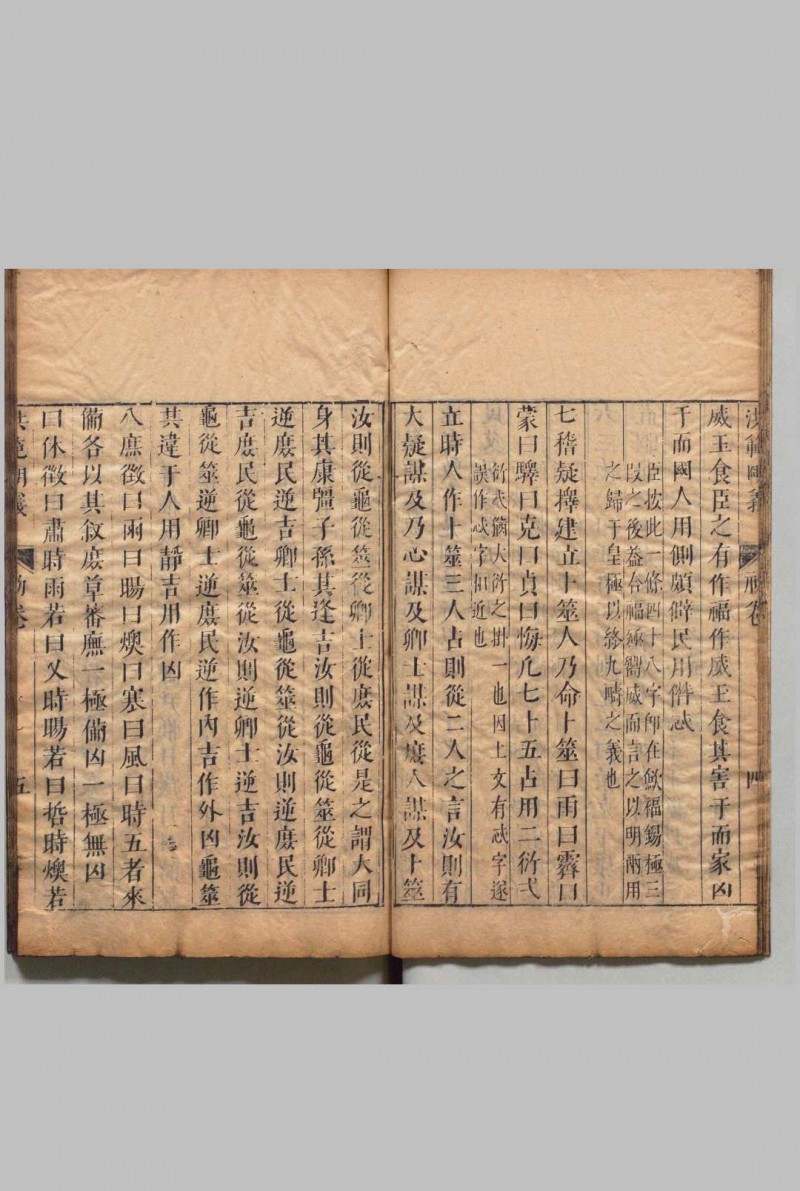 洪範明義 初卷 四
威玉食臣之有作福作威玉食其害于而家凶
于而國人用側頗僻民用僭忒
臣按此一條四十八字仰在歛福錫極三
叚之後益合福極嚮威而言之以明兩用
之歸于皇極以終九疇之義也
七稽疑擇建立卜筮人乃命卜筮曰雨曰霽曰
蒙曰驛曰克曰貞曰悔凡七卜五占用二衍弍
衍弍猶大衍之掛一也因上文有忒字遂
誤作忒字相近也
立時人作卜筮三人占則從二人之言汝則有
大疑謀及乃心謀及卿士謀及庶人謀及卜筮
汝則從龜從筮從卿士從庶民從是之謂大同
身其康彊子孫其逢吉汝則從龜從筮從卿士
逆庶民逆吉卿士從龜從筮從汝則逆庶民逆
吉庶民從龜從筮從汝則逆卿士逆吉汝則從
龜從筮逆卿士逆庶民逆作內吉作外凶龜筮
共違于人用靜吉用作凶
八庶徵曰雨曰暘曰燠曰寒曰風曰時五者來
備各以其敘庶草蕃廡一極備凶一極無凶
曰休徵曰肅時雨若曰乂時暘若曰晢時燠若
洪範明義 初卷 五